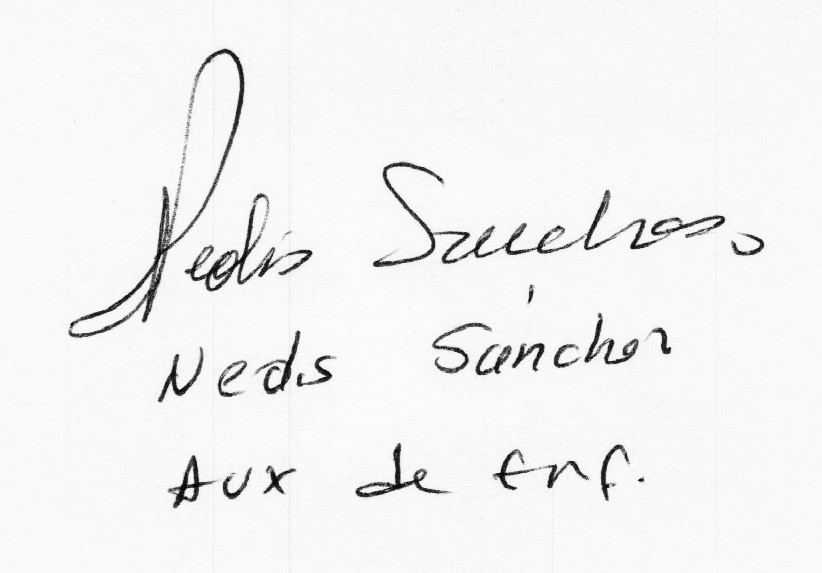 Nedis Sanchez
Nedis Sánchez
Aux de Enf.